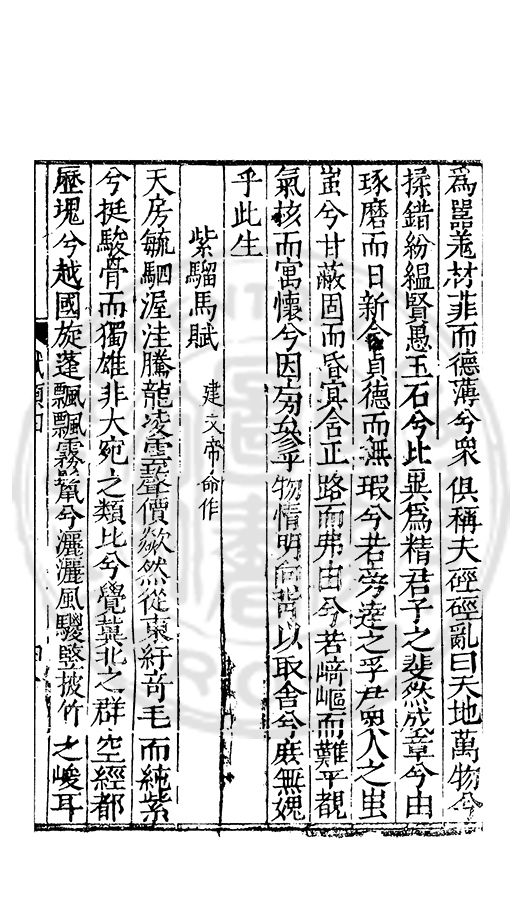 為器羌材菲而德薄兮衆俱稱夫硜硜亂曰天地萬物兮
揉錯紛縕賢愚玉石兮比異為精君子之斐然成章兮由
琢磨而日新含貞德而無瑕兮若旁達之孚尹衆人之蚩
蚩兮甘蔽固而昏冥舍正路而弗由兮若﨑嶇而難平覩
氣核而寓懷兮因旁參乎物情明向背以取舍兮庶無媿
乎此生
紫騮馬賦 建文帝命作
天房毓駟渥洼騰龍凌雲聲價欻然從東紆奇毛而純紫
兮挺駿骨而獨雄非大宛之類比兮覺冀北之群空經都
歷塊兮越國旋蓬飄飄霧鬣兮灑灑風騣豎披竹之峻耳